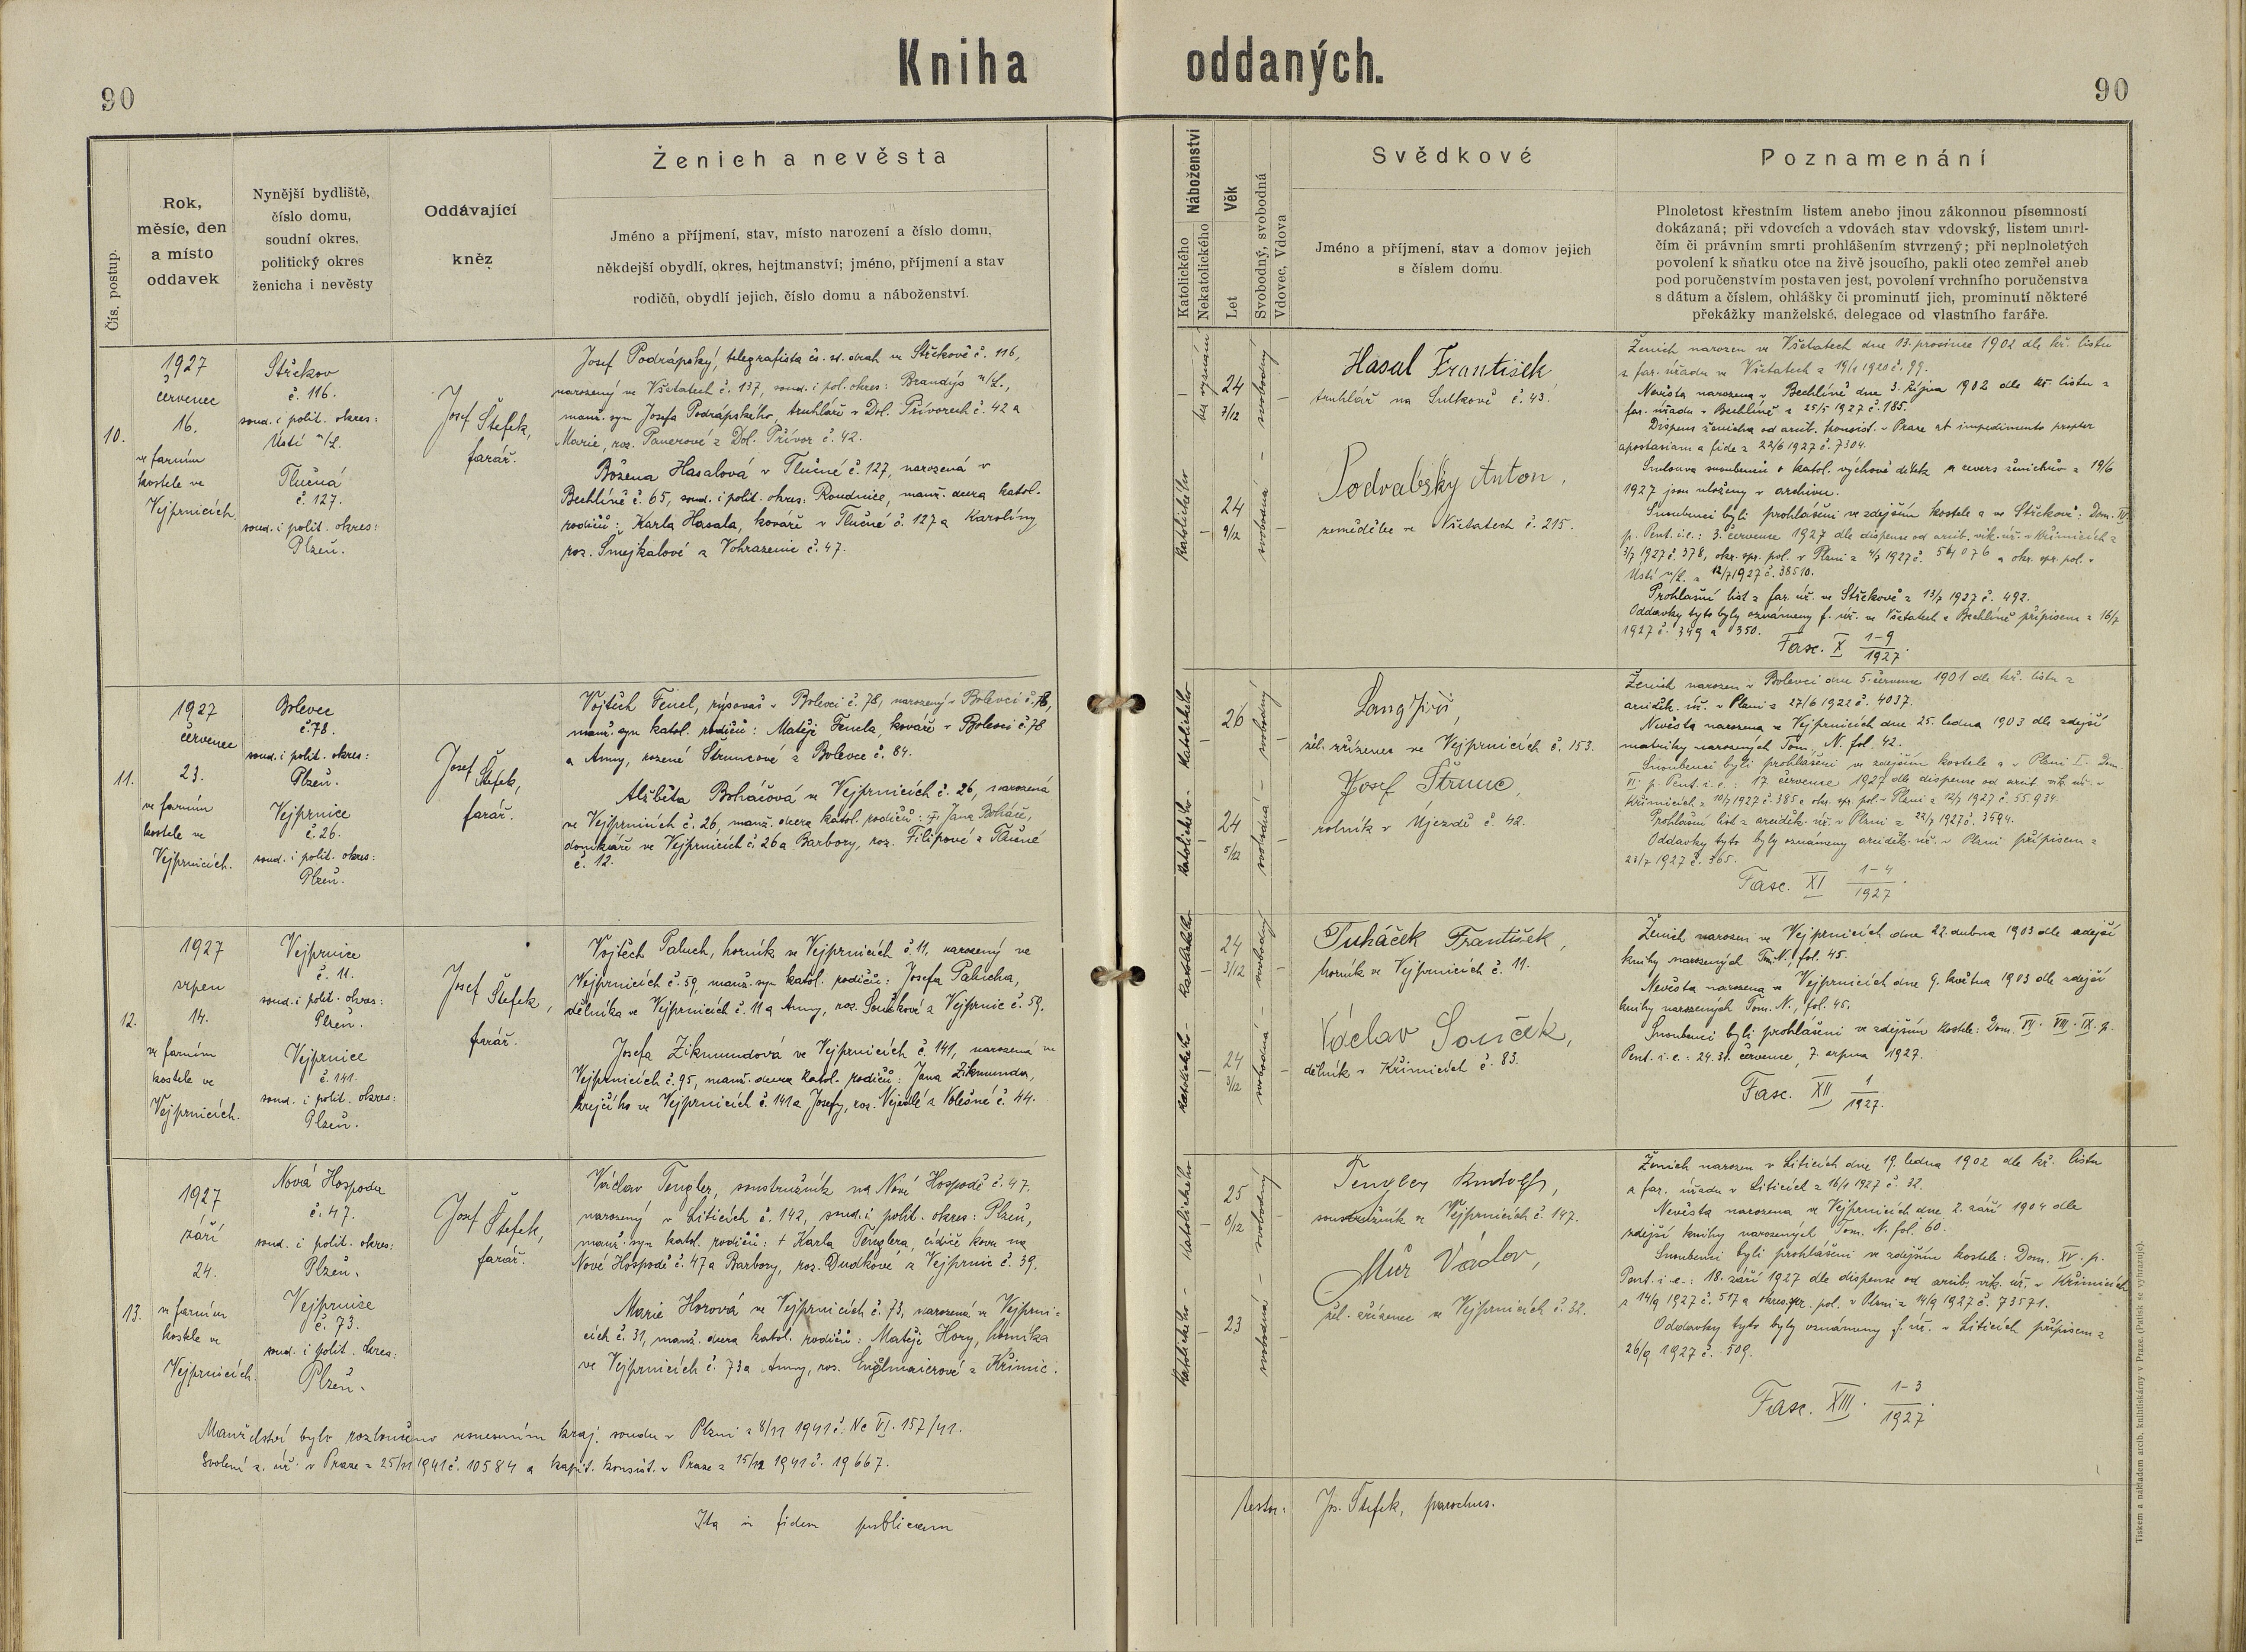 Kniha oddaných.
90
90
Čís. postup.
Rok,
měsíc, den
a místo
oddavek
Nynější bydliště,
číslo domu,
soudní okres,
politický okres
ženicha i nevěsty
Oddávající
kněz
Ženich a nevěsta
Jméno a příjmení, stav, místo narození a číslo domu,
někdejší obydlí, okres, hejtmanství; jméno, příjmení a stav
rodičů, obydlí jejich, číslo domu a náboženství.
Náboženství
Katolického
Nekatolického
Věk
Let
Svobodný, svobodná
Vdovec, Vdova
Svědkové
Jméno a příjmení, stav a domov jejich
s číslem domu.
Poznamenání
Plnoletost křestním listem anebo jinou zákonnou písemností
dokázaná; při vdovcích a vdovách stav vdovský, listem umrl-
čím či právním smrti prohlášením stvrzený; při neplnoletých
povolení k sňatku otce na živě jsoucího, pakli otec zemřel aneb
pod poručenstvím postaven jest, povolení vrchního poručenstva
s dátum a číslem, ohlášky či prominutí jich, prominutí některé
překážky manželské, delegace od vlastního faráře.
10.
1927
červenec
16.
ve farním
kostele ve
Vejprnicích.
Střekov
č. 116.
soud. i polit. okres:
Ústí n/L.
Tlučná
č. 127.
soud. i polit. okres:
Plzeň.
Josef Štefek,
farář.
Josef Podrápský, telegrafista čs. st. drah ve Střekově č. 116,
narozený ve Všetatech č. 137, soud. i pol. okres: Brandýs n/L.,
manž. syn Josefa Podrápského, truhláře v Dol. Přívorech č. 42 a
Marie, roz. Panerové z Dol. Přívor č. 42.
Božena Hasalová v Tlučné č. 127, narozená v
Bechlíně č. 65, soud. i polit. okres: Roudnice, manž. dcera katol.
rodičů: Karla Hasala, kováře v Tlučné č. 127 a Karolíny
roz. Šmejkalové z Vohrazenic č. 47.
bez vyznání
24
7/12
svobodný
Katolického
24
9/12
svobodná
Hasal František
truhlář na Sulkově č. 43.
Podvalský Anton,
zemědělec ve Všetatech č. 215.
Ženich narozen ve Všetatech dne 13. prosince 1902 dle kř. listu
z far. úřadu ve Všetatech z 19/1 1920 č. 99.
Nevěsta narozena v Bechlíně dne 3. října 1902 dle kř. listu z
far. úřadu v Bechlíně z 25/5 1927 č. 185.
Dispens ženicha od arcib. konsist. v Praze ab impedimento propter
apostasiam a fide z 22/6 1927 č. 7304.
Smlouva snoubenců o katol. výchově dítek a revers ženichův z 19/6
1927 jsou uloženy v archivu.
Snoubenci byli prohlášeni ve zdejším kostele a ve Střekově: Dom. IV.
p. Pent. i.e.: 3. července 1927 dle dispense od arcib. vik. úř. v Křimicích z
3/7 1927 č. 378, okr. spr. pol. v Plzni z 4/7 1927 č. 54076 a okr. spr. pol. v
Ústí n/L. z 12/7 1927 č. 38510.
Prohlašní list z far. úř. ve Střekově z 13/7 1927 č. 492.
Oddavky tyto byly oznámeny f. úř. ve Všetatech a Bechlíně přípisem z 16/7
1927 č. 349 a 350.
Fasc. X 1-9
1927.
11.
1927
červenec
23.
ve farním
kostele ve
Vejprnicích.
Bolevec
č. 78.
soud. i polit. okres:
Plzeň.
Vejprnice
č. 26.
soud. i polit. okres:
Plzeň.
Josef Štefek,
farář.
Vojtěch Fencl, rýsovač v Bolevci č. 78, narozený v Bolevci č. 78,
manž. syn katol. rodičů: Matěje Fencla, kováře v Bolevci č. 78
a Anny, rozené Štruncové z Bolevce č. 84.
Alžběta Boháčová ve Vejprnicích č. 26, narozená
ve Vejprnicích č. 26, manž. dcera katol. rodičů: † Jana Boháče,
domkáře ve Vejprnicích č. 26 a Barbory, roz. Filipové z
č. 12.
Katolického
26
svobodný
Katolického
24
5/12
svobodná
Lang Jiří,
žel. zřízenec ve Vejprnicích č. 153.
Josef Štrunc,
rolník v Újezdě č. 42.
Ženich narozen v Bolevci dne 5. července 1901 dle kř. listu z
arciděk. úř. v Plzni z 27/6 1922 č. 4037.
Nevěsta narozena ve Vejprnicích dne 25. ledna 1903 dle zdejší
matriky narozených Tom. N. fol. 42.
Snoubenci byli prohlášeni ve zdejším kostele a v Plzni I. Dom.
VI. p. Pent. i.e.: 17. července 1927 dle dispense od arcib. vik. úř. v
Křimicích z 10/7 1927 č. 385 a okr. spr. pol. v Plzni z 12/7 1927 č. 55.934.
Prohlašní list z arciděk. úř. v Plzni z 22/7 1927 č. 3594.
Oddavky tyto byly oznámeny arciděk. úř. v Plzni přípisem z
23/7 1927 č. 365.
Fasc. XI 1-4
1927.
12.
1927
srpen
14.
ve farním
kostele ve
Vejprnicích.
Vejprnice
č. 11.
soud. i polit. okres:
Plzeň.
Vejprnice
č. 141.
soud. i polit. okres:
Plzeň.
Josef Štefek,
farář.
Vojtěch Paluch, horník ve Vejprnicích č. 11, narozený ve
Vejprnicích č. 59, manž. syn katol. rodičů: Josefa Palucha,
dělníka ve Vejprnicích č. 11 a Anny, roz. Součkové z Vejprnic č. 59.
Josefa Zikmundová ve Vejprnicích č. 141, narozená ve
Vejprnicích č. 95, manž. dcera katol. rodičů: Jana Zikmunda,
krejčího ve Vejprnicích č. 141 a Josefy, roz. Nejedlé z Volešné č. 44.
Katolického
24
3/12
svobodný
Katolického
24
3/12
svobodná
Tuháček František,
horník ve Vejprnicích č. 11.
Václav Souček,
dělník v Křimicích č. 83.
Ženich narozen ve Vejprnicích dne 22. dubna 1903 dle zdejší
knihy narozených Tom. N., fol. 45.
Nevěsta narozena ve Vejprnicích dne 9. května 1903 dle zdejší
knihy narozených Tom. N., fol. 45.
Snoubenci byli prohlášeni ve zdejším kostele: Dom. VII. VIII. IX. p.
Pent. i.e.: 24. 31. července, 7. srpna 1927.
Fasc. XII 1
1927.
13.
1927
září
24.
ve farním
kostele ve
Vejprnicích.
Nová Hospoda
č. 47.
soud. i polit. okres:
Plzeň.
Vejprnice
č. 73.
soud. i polit. okres:
Plzeň.
Josef Štefek,
farář.
Václav Tengler, soustružník na Nové Hospodě č. 47.
narozený v Liticích č. 142, soud. i polit. okres: Plzeň,
manž. syn katol. rodičů: † Karla Tenglera, cídiče kovu na
Nové Hospodě č. 47 a Barbory, roz. Dudkové z Vejprnic č. 39.
Marie Horová ve Vejprnicích č. 73, narozená ve Vejprni-
cích č. 31, manž. dcera katol. rodičů: Matěje Hory, horníka
ve Vejprnicích č. 73 a Anny, roz. Englmaierové z Křimic.
Katolického
25
8/12
svobodný
Katolického
23
svobodná
Tengler Rudolf,
soustružník ve Vejprnicích č. 147.
Můr Václav,
žel. zřízenec ve Vejprnicích č. 32.
Ženich narozen v Liticích dne 19. ledna 1902 dle kř. listu
z far. úřadu v Liticích z 16/1 1927 č. 32.
Nevěsta narozena ve Vejprnicích dne 2. září 1904 dle
zdejší knihy narozených Tom. N. fol. 60.
Snoubenci byli prohlášeni ve zdejším kostele: Dom. XV. p.
Pent. i.e.: 18. září 1927 dle dispense od arcib. vik. úř. v Křimicích
z 14/9 1927 č. 517 a okres. spr. pol. v Plzni z 14/9 1927 č. 73571.
Oddavky tyto byly oznámeny f. úř. v Liticích přípisem z
26/9 1927 č. 509.
Fasc. XIII. 1-3
1927.
Manželství bylo rozloučeno usnesením kraj. soudu v Plzni z 8/11 1941 č. Nc VI. 157/41.
Svolení z. úř. v Praze z 25/11 1941 č. 10584 a kapit. konsist. v Praze z 15/12 1941 č. 19667.
Ita in fidem publicam testor: Jos. Štefek, parochus.
Tiskem a nákladem arcib. knihtiskárny v Praze. (Patisk se vyhrazuje).